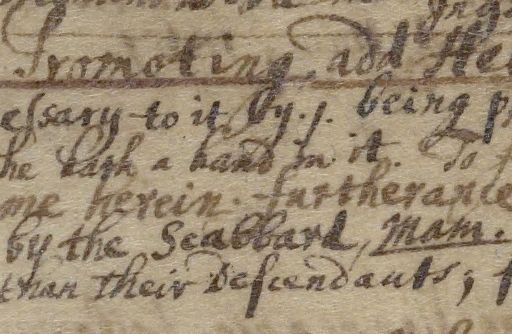 Promoting, add
essary to it by. j. being
he hath a hand in it. To
me herein. furtherance
by the Scabbard, Mam.
than their Descendants;